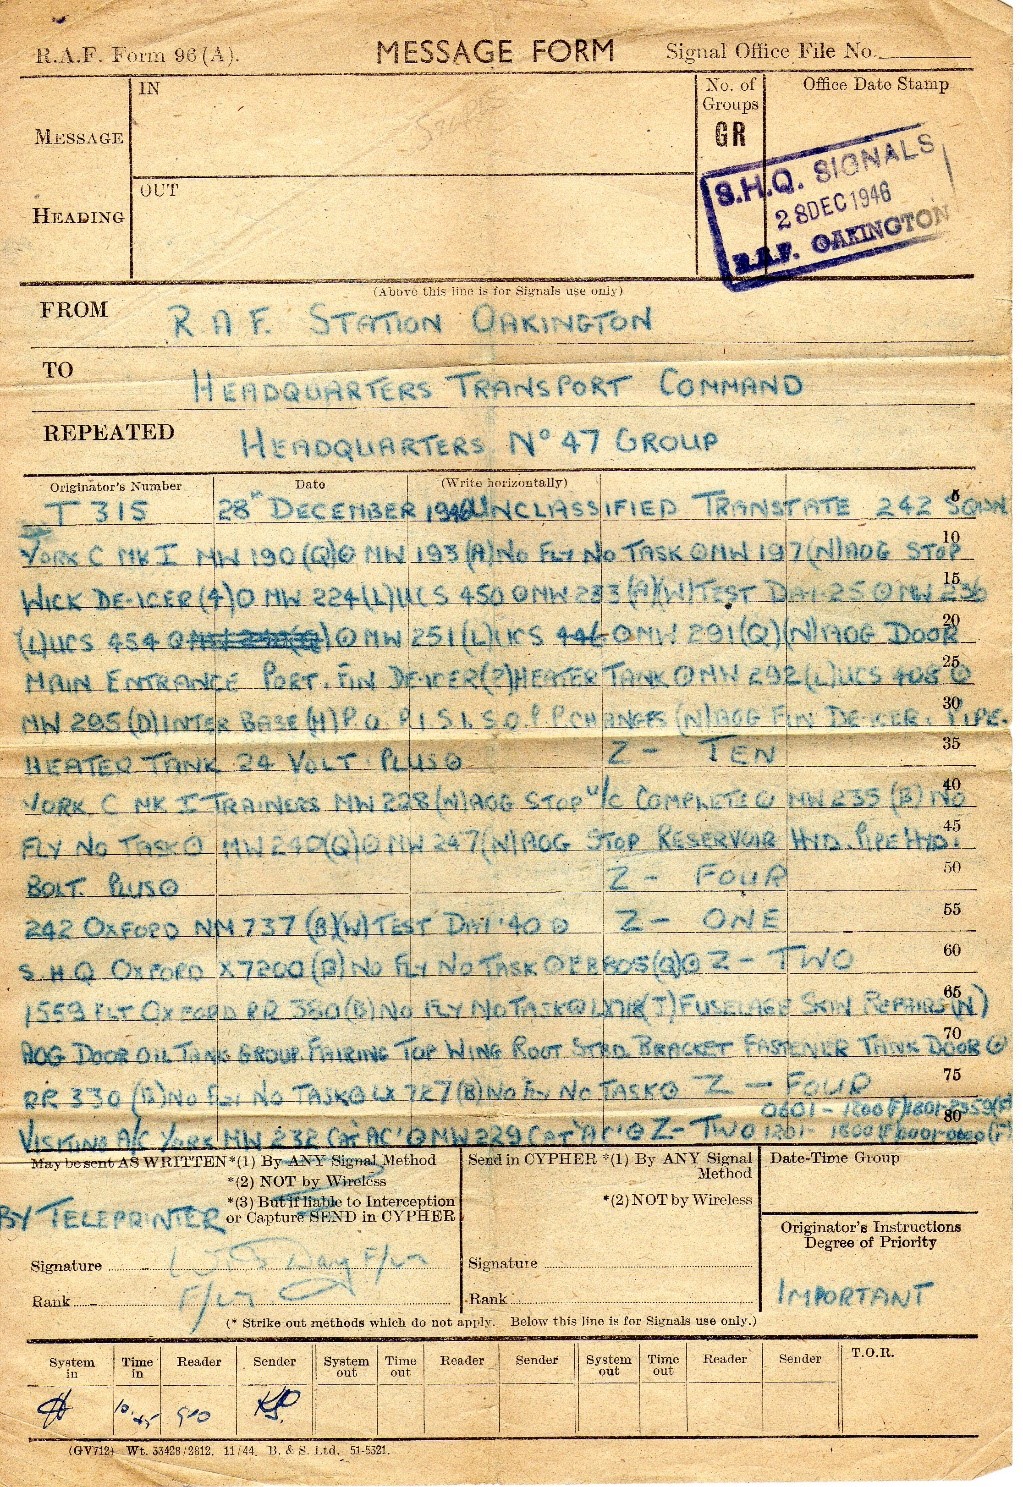 R.A.F. Form 96 (A). MESSAGE FORM Signal Office File No.
IN No. of Groups Office Date Stamp
MESSAGE GR
S.H.Q. SIGNALS
OUT 28 DEC 1946
HEADING R.A.F. OAKINGTON
(Above this line is for Signals use only)
FROM R A F. STATION OAKINGTON
TO HEADQUARTERS TRANSPORT COMMAND
REPEATED HEADQUARTERS No 47 GROUP
Originator's Number Date (Write horizontally)
T 315 28 DECEMBER 1946 UNCLASSIFIED TRANSTATE 242 SQDN 5
YORK C MK I MW 190 (Q)⊙ MW 193 (A) NO FLY NO TASK ⊙ MW 197 (N) AOG STOP 10
WICK DE-ICER (4)⊙ MW 224 (L) UCS 450 ⊙ MW 233 (A)(W) TEST DAY 25 ⊙ MW 236 15
(L) UCS 454 ⊙ ⊙ MW 251 (L) UCS ⊙ MW 291 (Q)(N) AOG DOOR 20
MAIN ENTRANCE PORT. FIN DE-ICER (2) HEATER TANK ⊙ MW 292 (L) UCS 408 ⊙ 25
MW 295 (D) INTER BASE (H) P.O. P.I.S.I.S.O.P.P. CHANGES (N) AOG FIN DE-ICER. PIPE. 30
HEATER TANK 24 VOLT PLUS ⊙ Z - TEN 35
YORK C MK I TRAINERS MW 228 (N) AOG STOP U/C COMPLETE ⊙ MW 235 (B) NO 40
FLY NO TASK ⊙ MW 240 (Q)⊙ MW 247 (N) AOG STOP RESERVOIR HYD. PIPE HYD. 45
BOLT. PLUS ⊙ Z - FOUR 50
242 OXFORD NM 737 (B)(W) TEST DAY '40 ⊙ Z - ONE 55
S.H.Q OXFORD X7200 (B) NO FLY NO TASK ⊙ (Q)⊙ Z - TWO 60
1559 FLT OXFORD RR 380 (B) NO FLY NO TASK ⊙ (J) FUSELAGE SKIN REPAIRS (N) 65
AOG DOOR OIL TANK GROUP. FAIRING TOP WING ROOT STBD. BRACKET FASTENER TANK DOOR ⊙ 70
RR 330 (B) NO FLY NO TASK ⊙ LX 727 (B) NO FLY NO TASK ⊙ Z - FOUR 75
0601 - 1200 (F) 1801-2359 (F)
VISITING A/C YORK MW 232 CAT 'AC' ⊙ MW 229 CAT 'AC' ⊙ Z - TWO 1201 - 1800 (F) 0001-0600 (F) 80
May be sent AS WRITTEN *(1) By ANY Signal Method
*(2) NOT by Wireless
*(3) But if liable to Interception or Capture SEND in CYPHER
BY TELEPRINTER
Signature Day F/Lt
Rank F/Lt
Send in CYPHER *(1) By ANY Signal Method
*(2) NOT by Wireless
Signature
Rank
Date-Time Group
Originator's Instructions
Degree of Priority
IMPORTANT
(* Strike out methods which do not apply. Below this line is for Signals use only.)
System in Time in Reader Sender System out Time out Reader Sender System out Time out Reader Sender T.O.R.
10.45
(GV712) Wt. 33428/2812. 11/44. B. & S. Ltd. 51-5321.